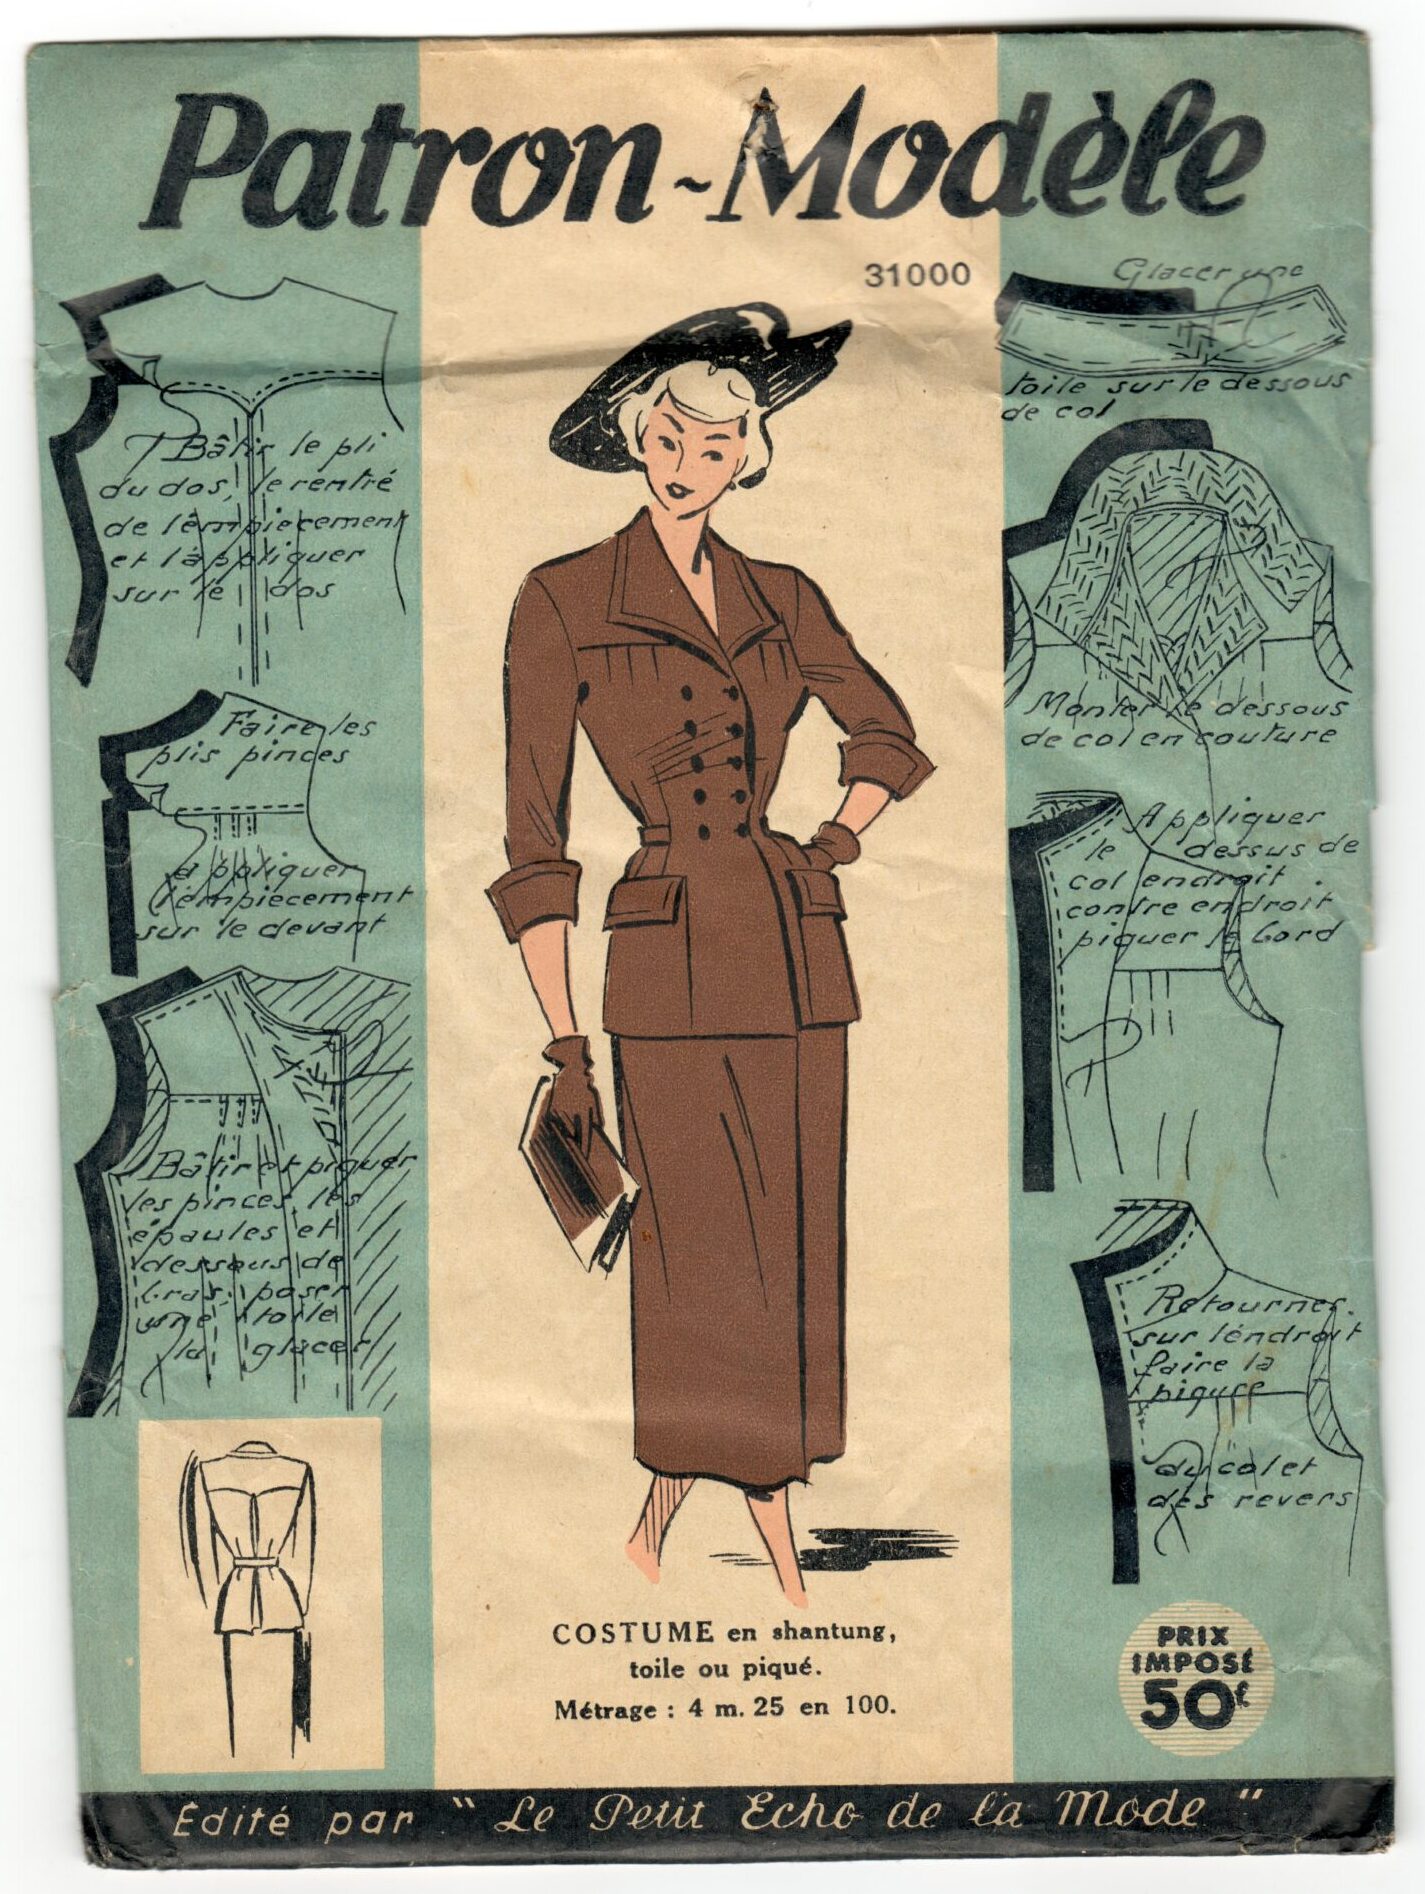 Patron-Modèle
31000
Bâtir le pli
du dos, le rentré
de l'empiècement
et l'appliquer
sur le dos
Faire les
plis pinces
appliquer
l'empiecement
sur le devant
Bâtir et piquer
les pinces, les
épaules et
dessous de
bras; poser
une toile
la glacer
Glacer une
toile sur le dessous
de col
Monter le dessous
de col en couture
Appliquer
le dessus de
col endroit
contre endroit
piquer le bord
Retourner
sur l'endroit
faire la
piqure
du col et
des revers
COSTUME en shantung,
toile ou piqué.
Métrage : 4 m. 25 en 100.
PRIX
IMPOSÉ
50f
Édité par "Le Petit Echo de la Mode"